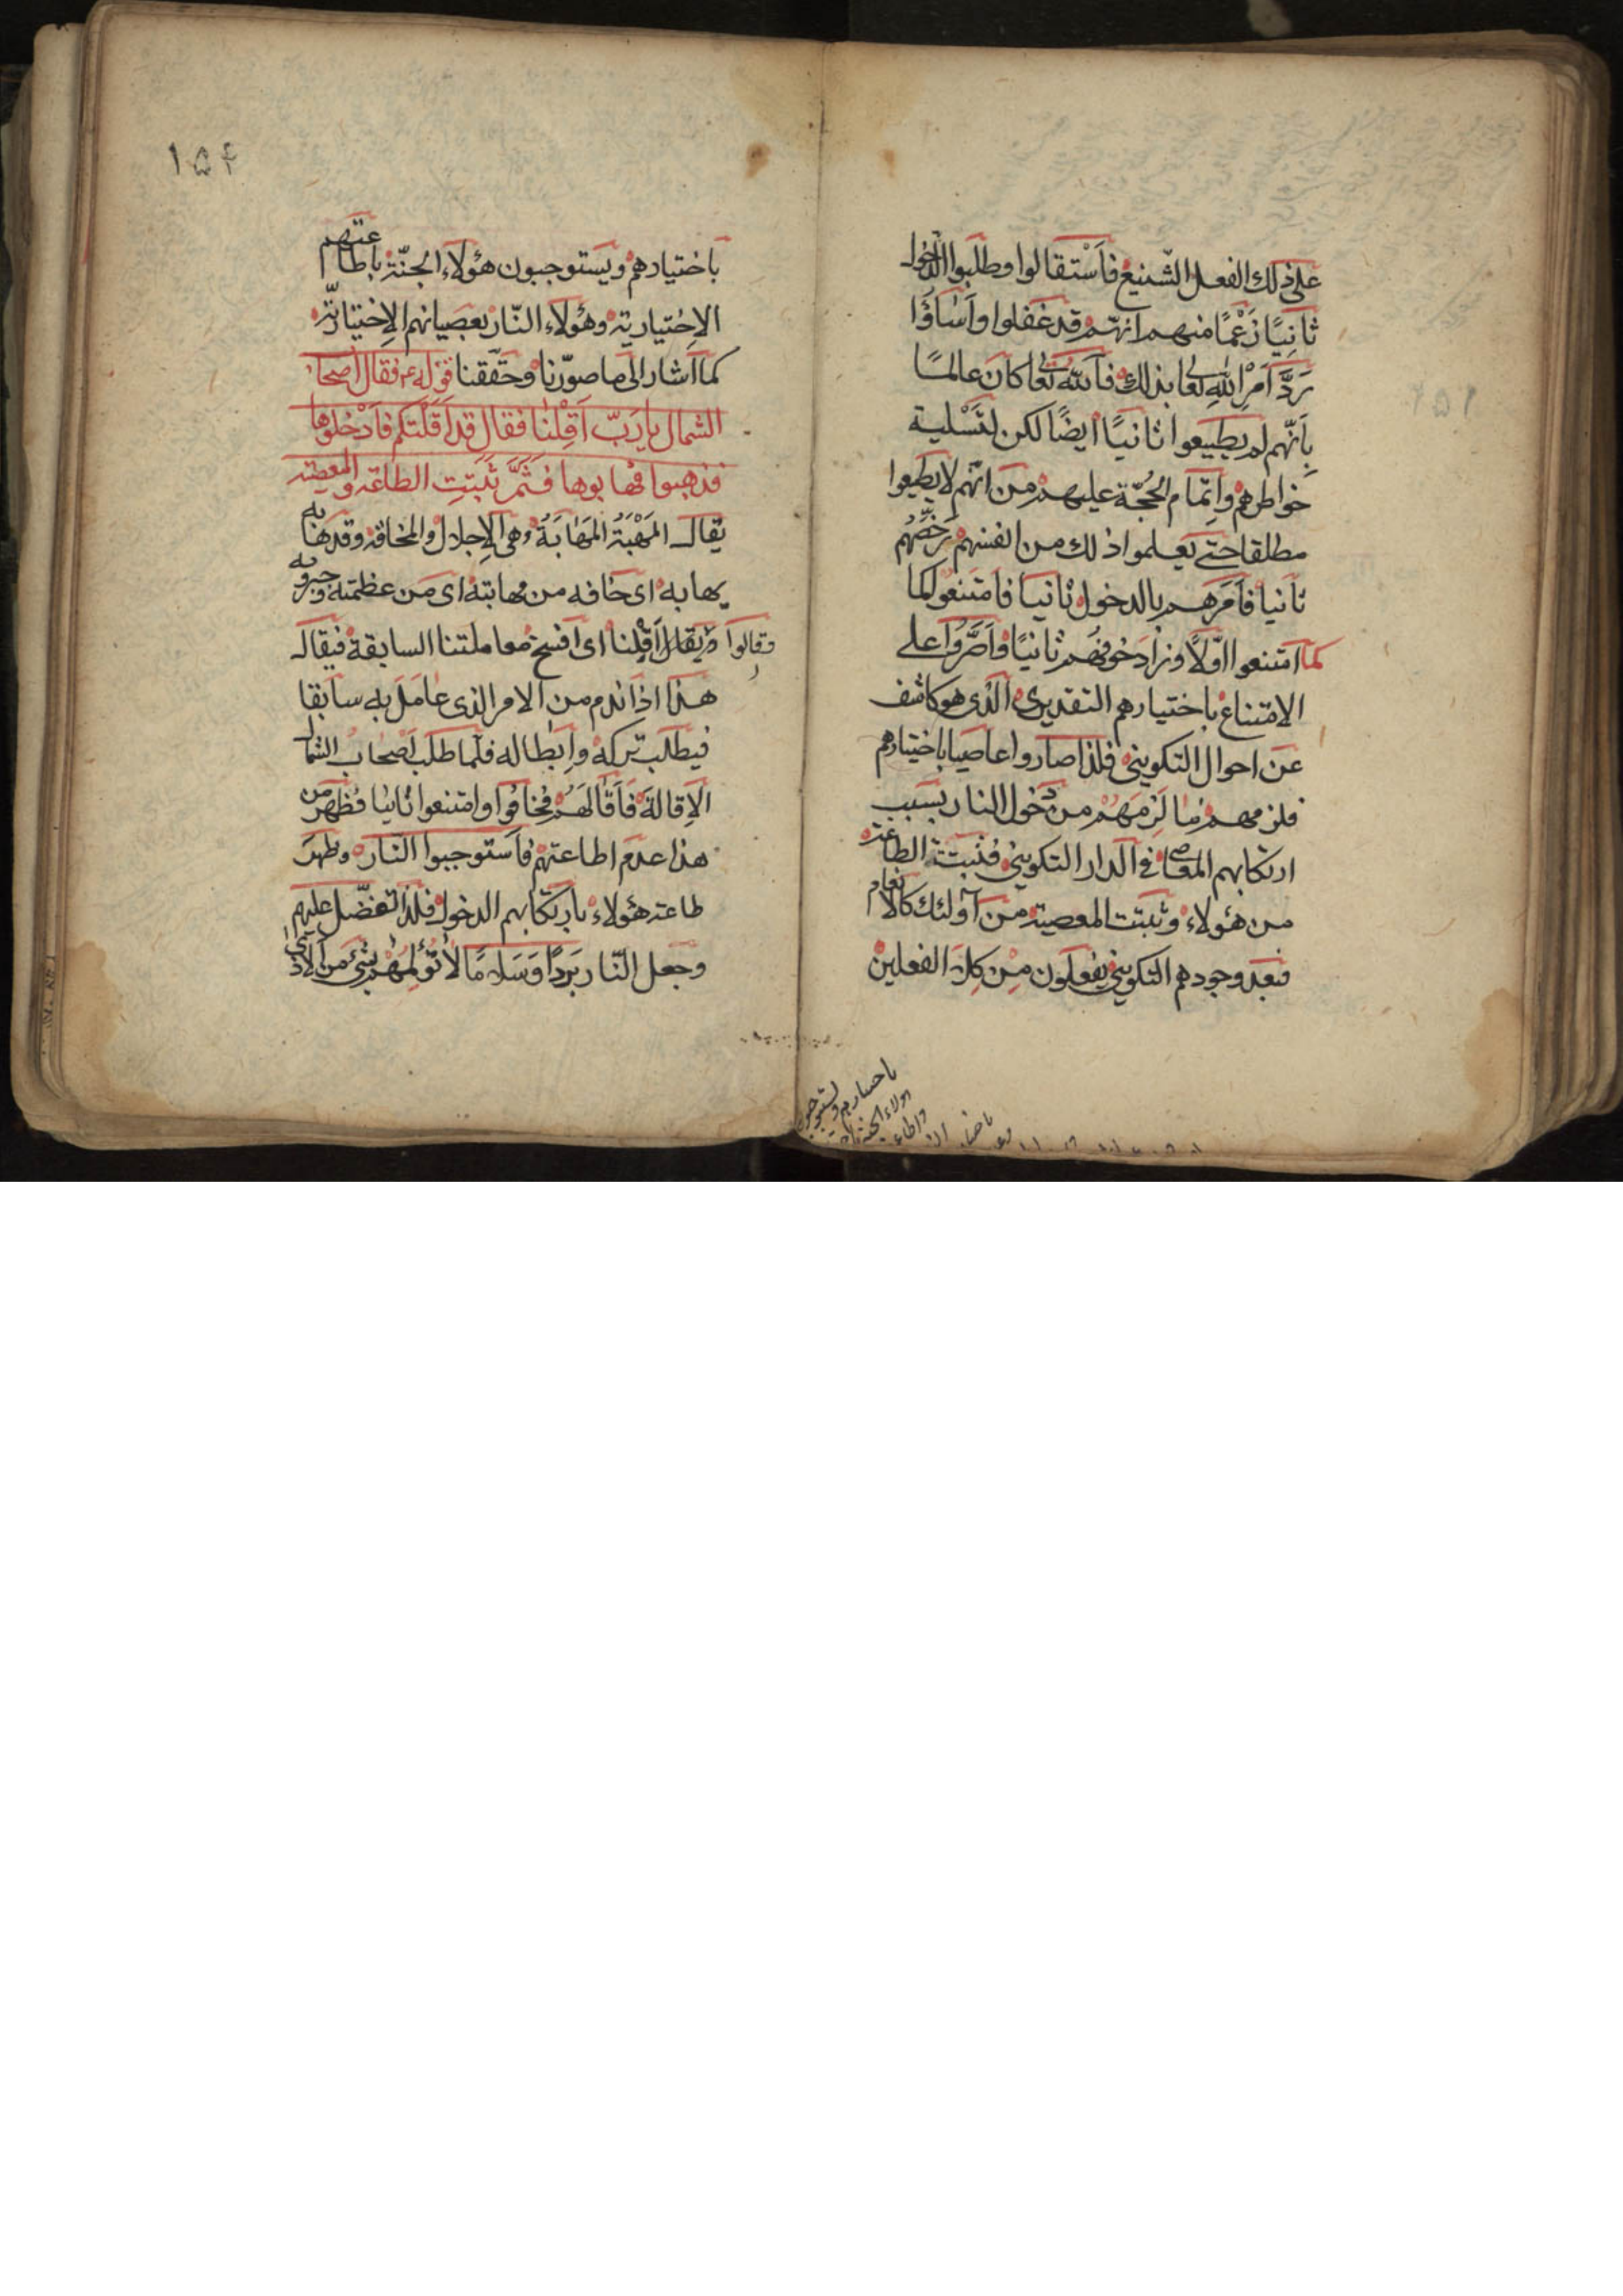 على ذلك الفعل الشّنيع فاَسْتقالوا وطلبوا الدّخول
ثانيًا زَعْمًا منهم انهّم قد غفلوا واَساؤُا
رَدَّ اَمْرِ اللهِ تعا بذلك فاَللهُ تعا كاَنَ عالمًا
بِاَنّهم لم يطيعوا ثانيًا ايضًا لكن لتَسْلية
خواطرهم واِتمّام الحُجّة عليهم من انّهم لا يطيعوا
مطلقا حتّى يَعلموا ذلك من انفسهم رَخَّصَهُم
ثانيا فاَمَرَهم بالدخول ثانيا فاَمتنعوا كما
كما امتنعوا اوّلاً وزادَ خوفهُم ثانيًا واَصَرُّوا على
الامتناع باختيارهم التقديرى الّذى هو كاشف
عن احوال التكوينى فلذا صاروا عاصيا باختيارهم
فلزمهم ما لَزِمَهُمْ من دخول النار بسبب
ارتكابهم المعاصى فى الدار التكوينى فثبتت الطاعة
من هؤلاء وثبتت المعصية من اَولئك كالانعام
فبعد وجودهم التكوينى يفعلون مِن كِلَا الفعلين
باحسارهم ويستوجبون
هولاء الجنة
١٥٤
باختيارهم ويستوجبون هؤلاء الجنّة باطاعتهم
الاِختيارية وهؤلاء النّار بعصيانهم الاِختياريّة
كما اَشار الى ما صوّرنا وحقّقنا قوله ع فقال اصحا
الشمال يا رَبّ اَقِلْنا فقال قد اَقَلْتكم فاَدْخُلوها
فذهبوا فهابوها فَثَمَّ ثَبَتتِ الطاعة والمعصية
يقال المَهْبَةُ المَهابَةُ وهى الاِجلال والمخافة وقد هابه
يهابه اى خافه من مهابته اى من عظمته وجبروته
وقالوا و يقال اَقِلْنا اى افسخ معاملتنا السابقة فيقال
هذا اذا ندم من الامر الذى عامَلَ به سابقا
فيطلب تركه واِبطاله فلّما طلب اَصحاب الشمال
الاِقالةَ فاَقالَهُمْ فخافُوا وامتنعوا ثانيا فظهر من
هذا عدم اطاعتهم فاَستوجبوا النّار وظهَر
طاعة هؤلاء بارتكابهم الدخول فلذا تفضّل عليهم
وجعل النّار بَردًا وَسَلامًا لا تُؤلمهُم بشئ من الاَذى